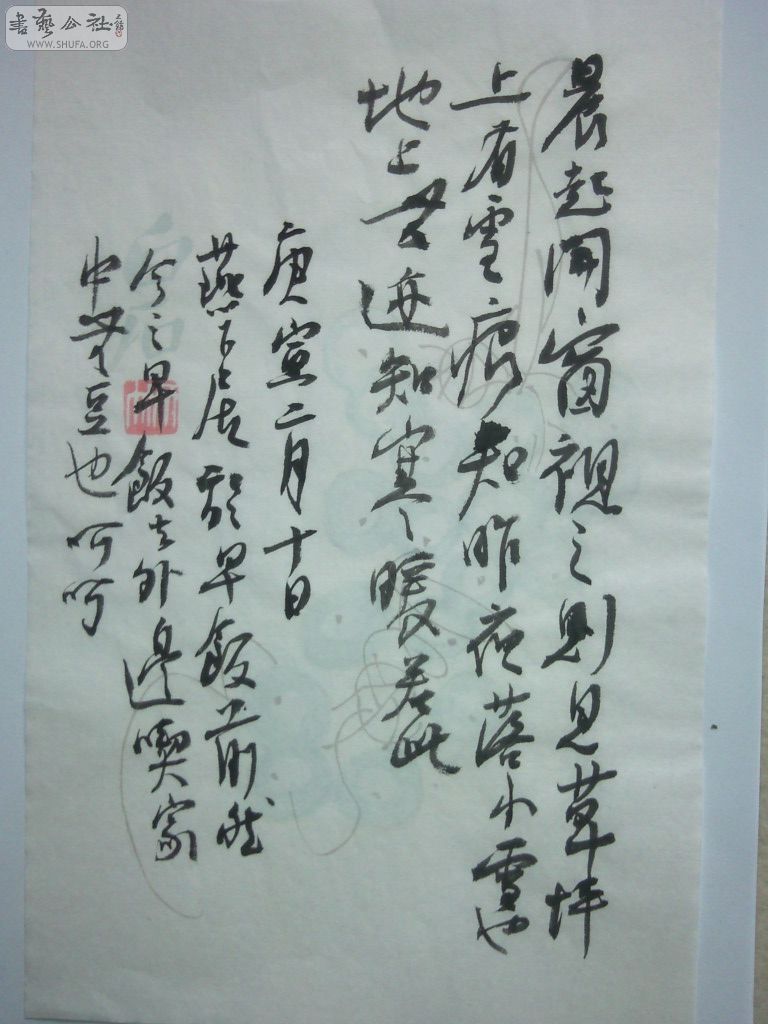 晨起開窗視之則見草坪
上有雪痕知昨夜落小雪也
地上無迹知寒暖若此
庚寅二月十日
燕下居於早飯前然
今之早飯去外邊喫家
中無豆也呵呵
書藝公社
WWW.SHUFA.ORG